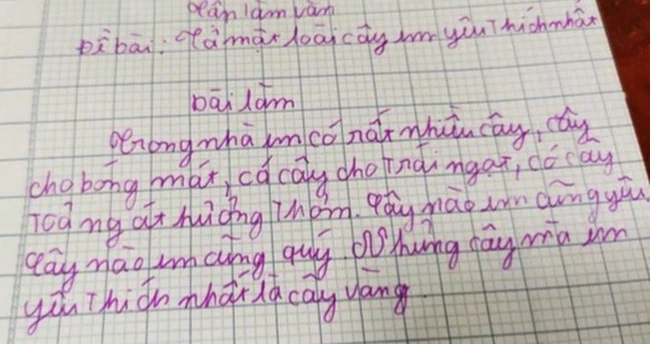 Tập làm văn
Đề bài: Tả một loài cây em yêu thích nhất
bài làm
Trong nhà em có rất nhiều cây, cây
cho bóng mát, có cây cho trái ngọt, có cây
toả ngát hương thơm. Cây nào em cũng yêu.
Cây nào em cũng quý. Nhưng cây mà em
yêu thích nhất là cây vàng.